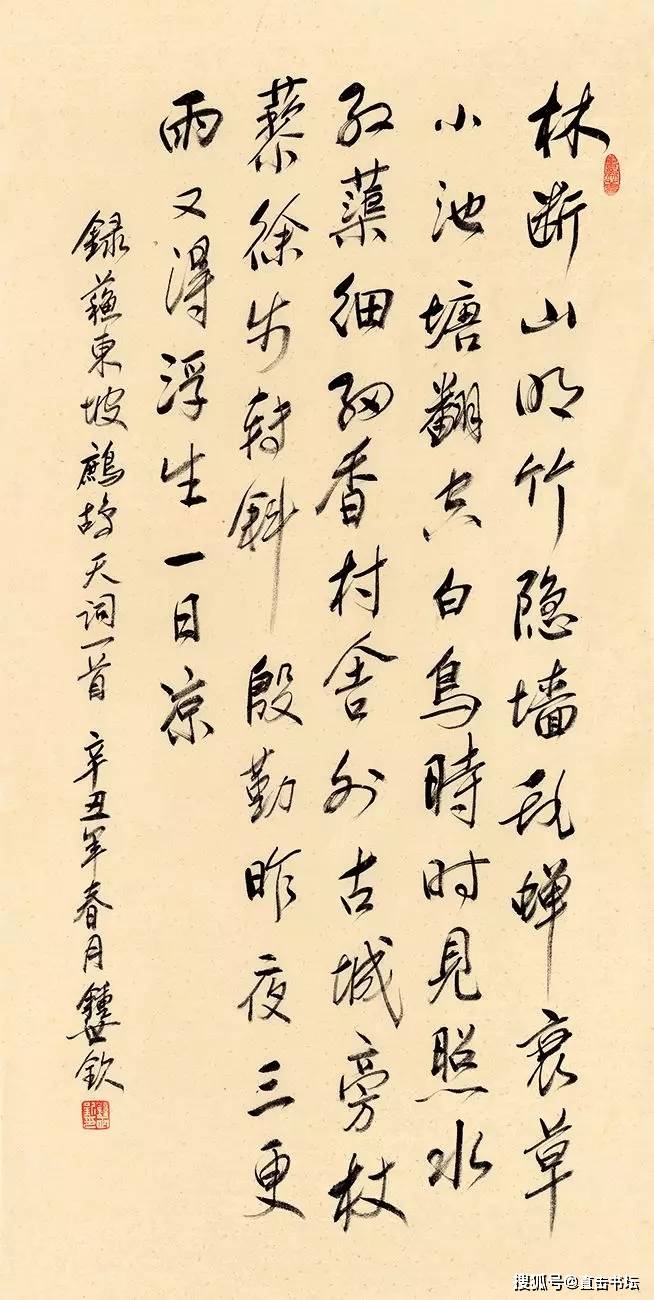 林断山明竹隐墙乱蝉衰草
小池塘翻空白鸟時时見照水
红蕖细细香村舍外古城旁杖
藜徐步转斜 殷勤昨夜三更
雨又得浮生一日凉
録蘇東坡鹧鸪天词一首 辛丑年春月鐘世钦
搜狐号@直击书坛